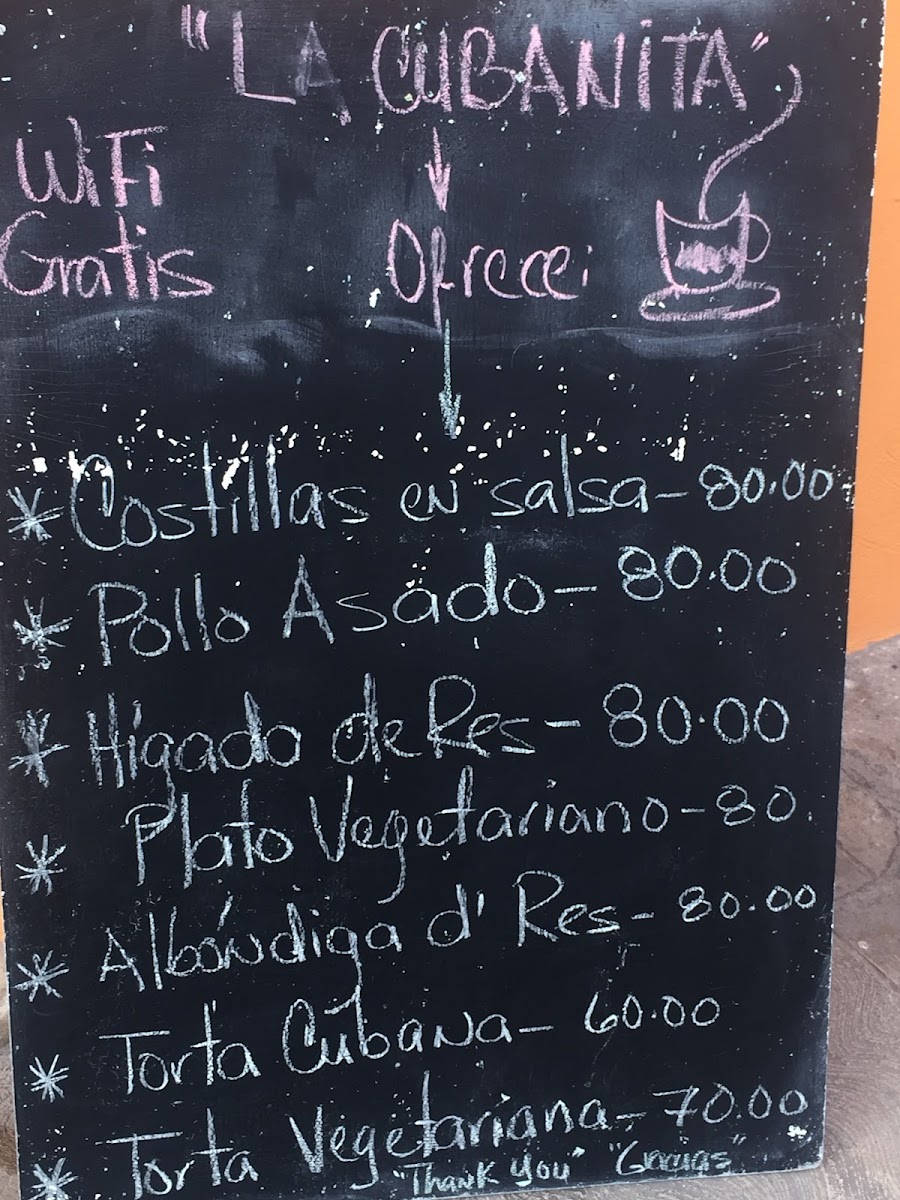 "LA CUBANITA"
WiFi
Gratis
Ofrece:
* Costillas en salsa - 80.00
* Pollo Asado - 80.00
* Hígado de Res - 80.00
* Plato Vegetariano - 80.
* Albóndiga d' Res - 80.00
* Torta Cubana - 60.00
* Torta Vegetariana - 70.00
"Thank you" "Gracias"